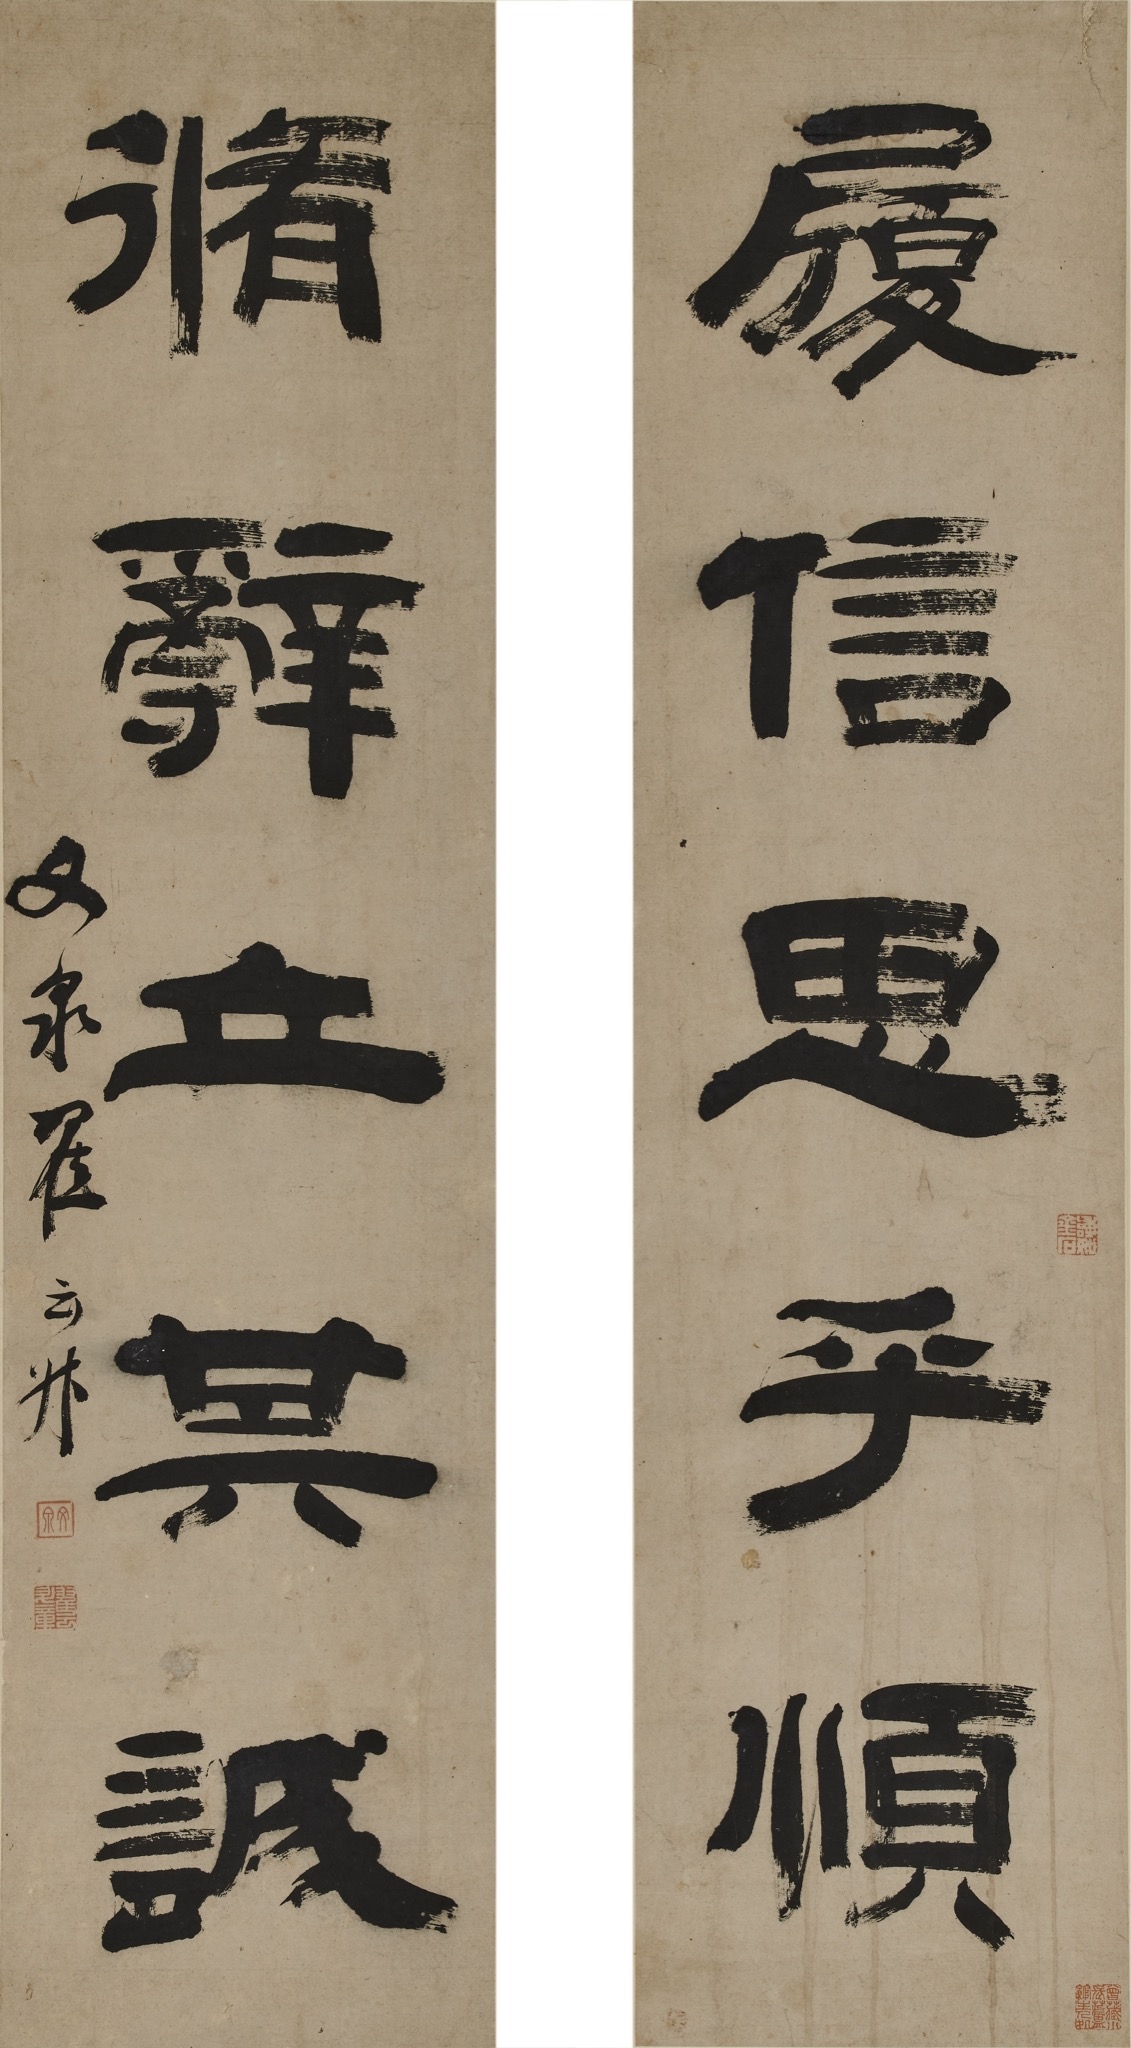 履信思乎順
脩辭立其誠
文泉翟云升
文泉